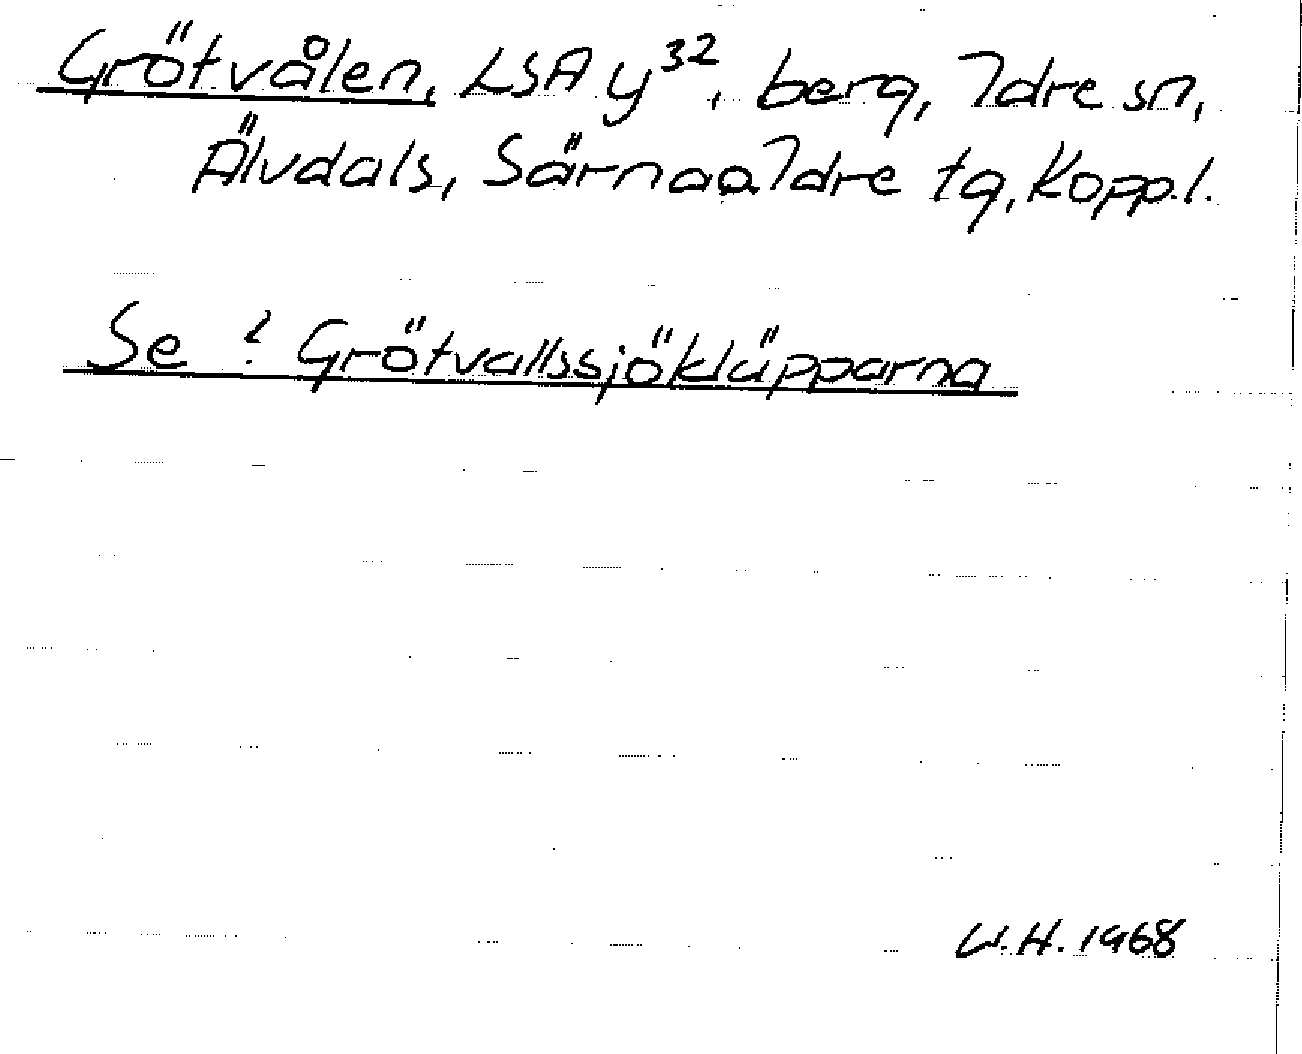 Grötvålen, LSA y³², berg, Idre sn,
Älvdals, Särna o. Idre tg, Kopp.l.
Se ! Grötvallssjökläpparna
W.H. 1968